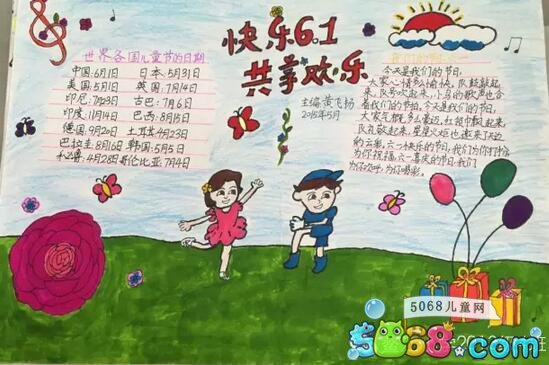 快乐6.1
共享欢乐
主编:黄飞扬
2015年5月
世界各国儿童节的日期
中国:6月1日 日本:5月31日
美国:5月1日 英国:7月14日
印尼:7月23日 古巴:7月6日
印度:11月14日 巴西:8月15日
德国:9月20日 土耳其:4月23日
巴拉圭:8月16日 韩国:5月5日
4月28日 哥伦比亚:7月4日
我们的节日
今天是我们的节日,
大家心情多愉快。队鼓敲起
来,队号吹起来,小鸟的歌声也
着我们的节拍。今天是我们的节日,
大家气概多么豪迈。红领巾飘起来,
队礼敬起来,星星火炬也
的云彩。六一快乐的节日,我们为你
为你祝福。六一喜庆的节日,我们
为你欢呼,为你喝彩。
5068儿童网
5068.com